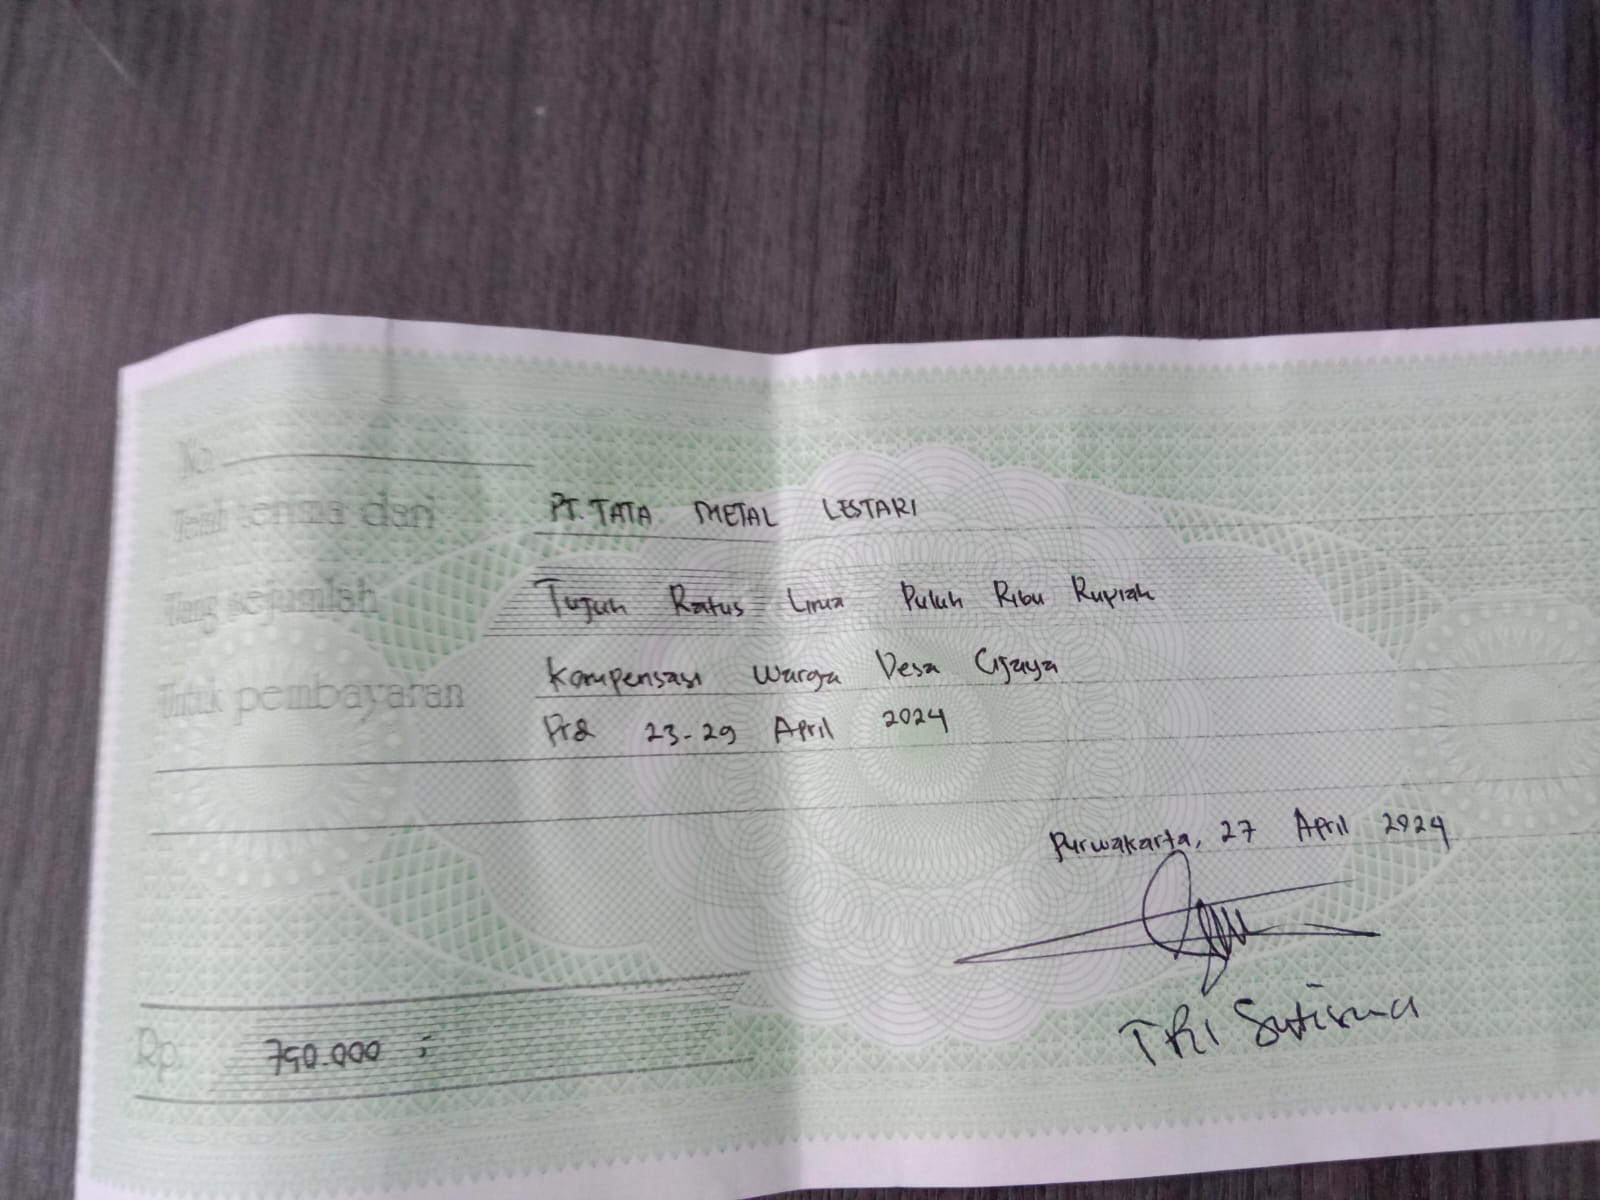 No.
Telah terima dari PT. TATA METAL LESTARI
Uang sejumlah Tujuh Ratus Lima Puluh Ribu Rupiah
Untuk pembayaran Kompensasi Warga Desa Cijaya
Prd 23-29 April 2024
Purwakarta, 27 April 2024
TRI Sutisna
Rp. 750.000